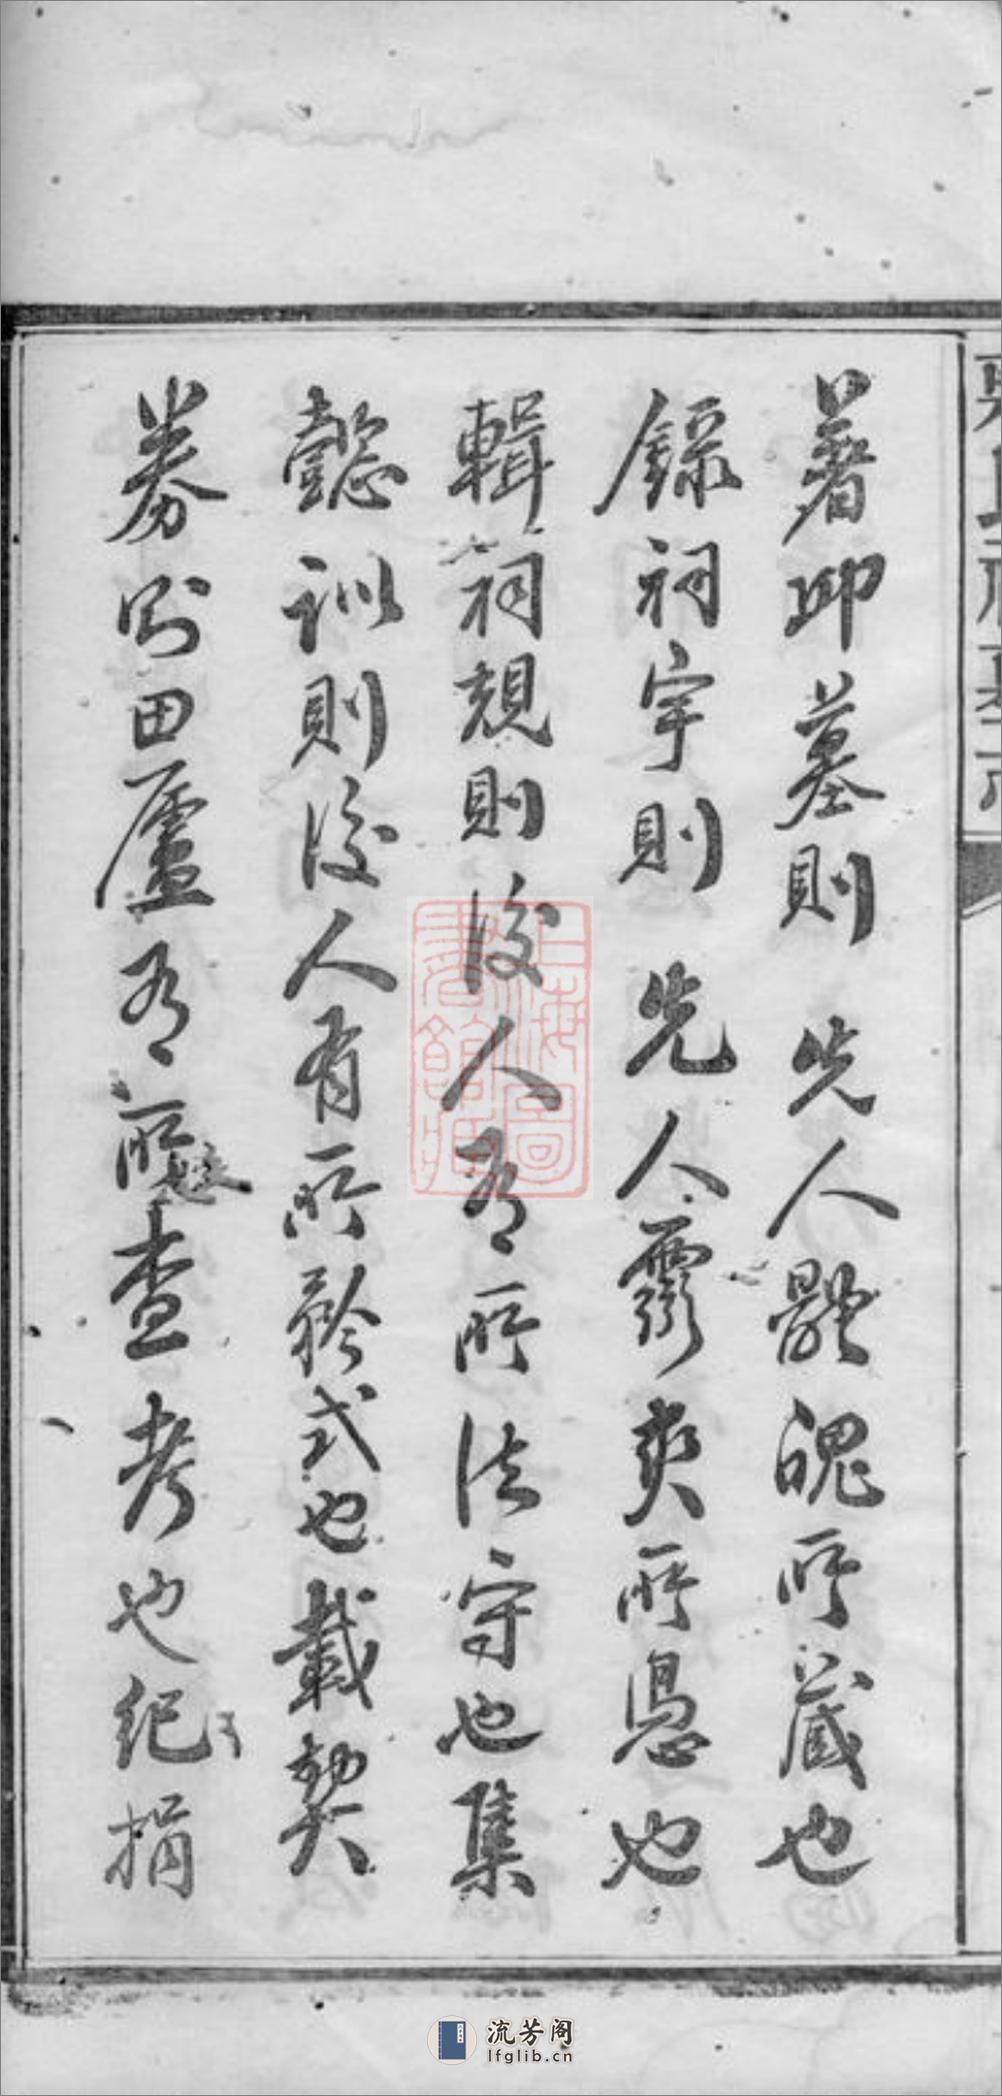 著邱墓則先人體魄所藏也
錄祠宇則先人靈爽所憑也
輯祠規則後人有所法守也集
懿訓則後人有所矜式也載契
券則田廬有所查考也紀捐
上海圖書館藏
流芳阁
lfglib.cn